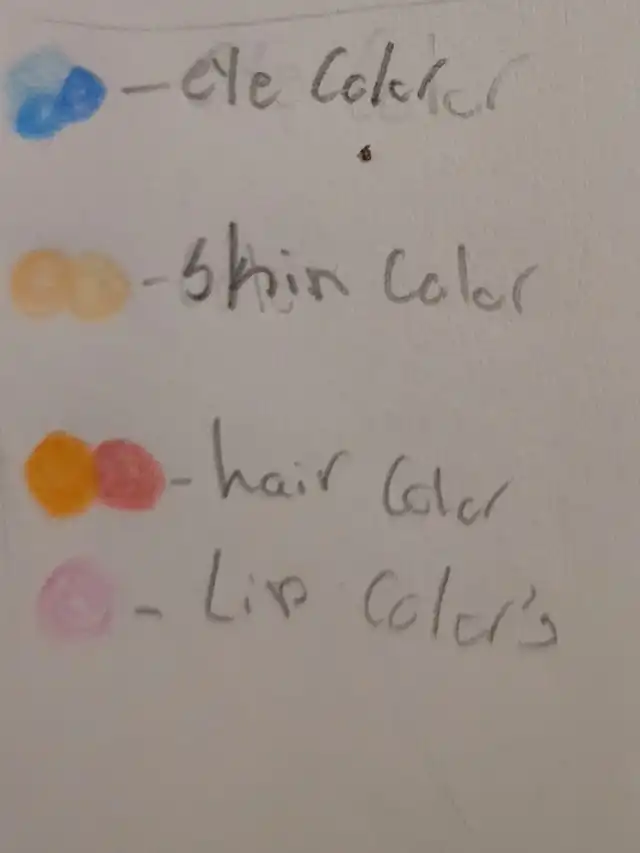 - eye Color
- Skin Color
- hair Color
- Lip Color's